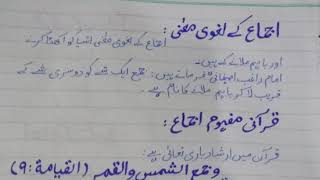 اجتماع کے لغوی معنٰی :
اجتماع کے لغوی معنٰی اشیا کو اکٹھا کرنے
اور باہم ملانے کے ہیں۔
امام راغب اصفہانی فرماتے ہیں: جمع ایک شے کو دوسری شے کے
قریب لا کر باہم ملانے کا نام ہے۔
قرآنی مفہوم اجتماع :
قرآن میں ارشاد باری تعالٰی ہے:
وجمع الشمس والقمر (القیامة: ٩)